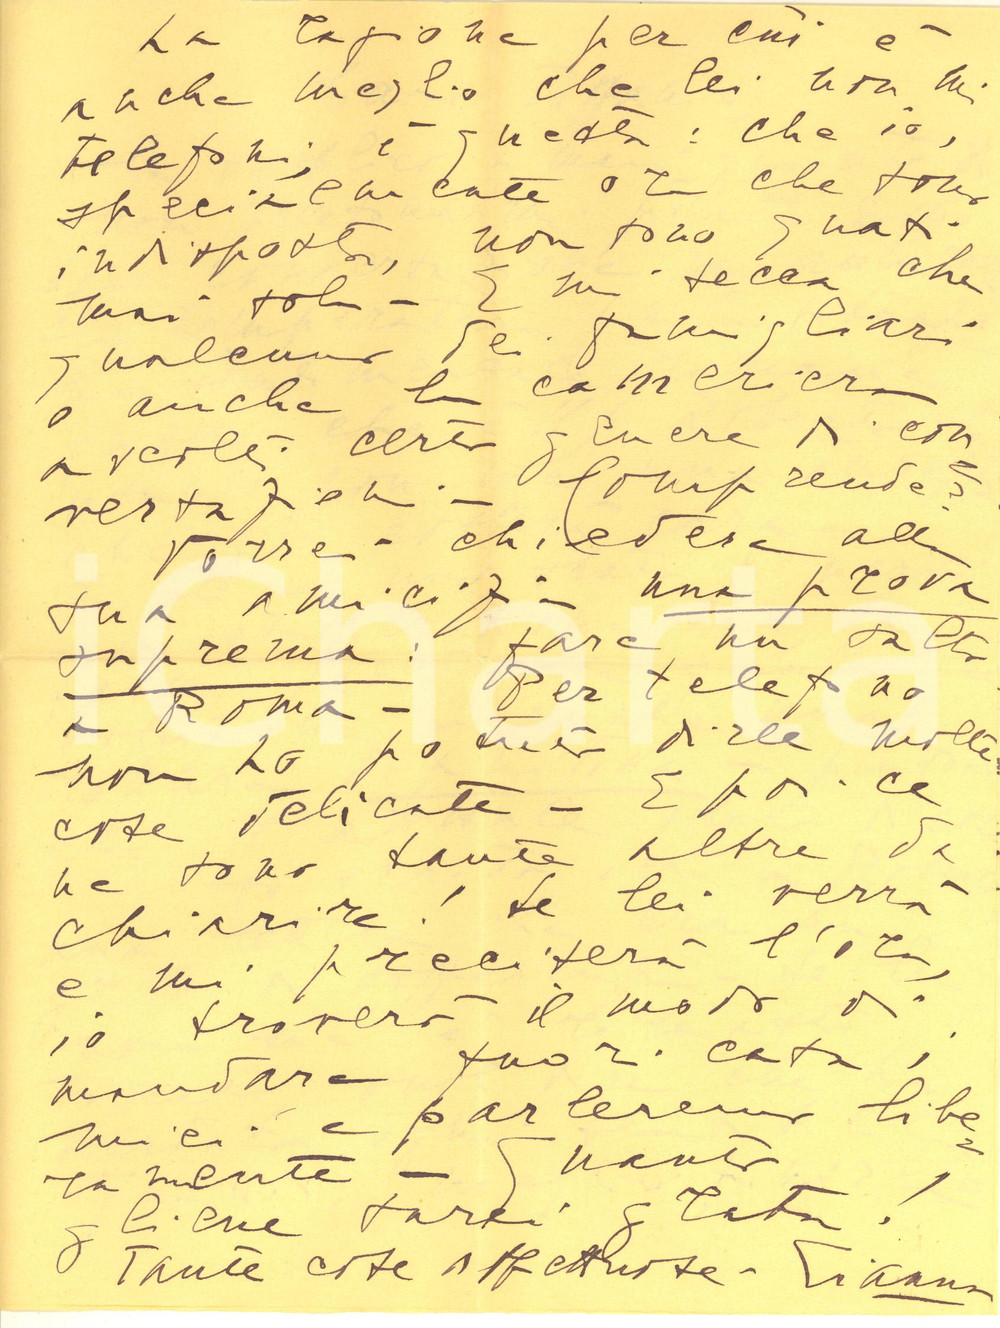 La ragione per cui è
anche meglio che lei non mi
telefoni, è questa: che io,
specialmente ora che sono
indisposta, non sono quasi
mai sola - E mi secca che
qualcuno dei famigliari
o anche la cameriera
ascolti certo genere di con=
versazioni - Comprende?
Vorrei chiedere alla
sua amicizia una prova
suprema: fare un salto
a Roma - Per telefono
non ho potuto dirle molte
cose delicate - E poi ce
ne sono tante altre da
chiarire! Se lei verrà
e mi preciserà l'ora,
io troverò il modo di
mandare fuori casa i
miei e parleremo libe=
ramente - Quanto
gliene sarei grata!
Tante cose affettuose - Gianna
iCharta